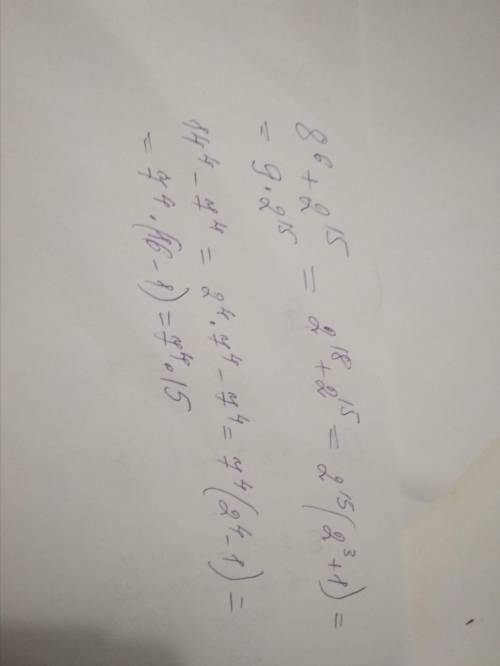 8⁶ + 2¹⁵ = 2¹⁸ + 2¹⁵ = 2¹⁵(2³ + 1) =
= 9 · 2¹⁵
14⁴ - 7⁴ = 2⁴ · 7⁴ - 7⁴ = 7⁴(2⁴ - 1) =
= 7⁴ · (16 - 1) = 7⁴ · 15